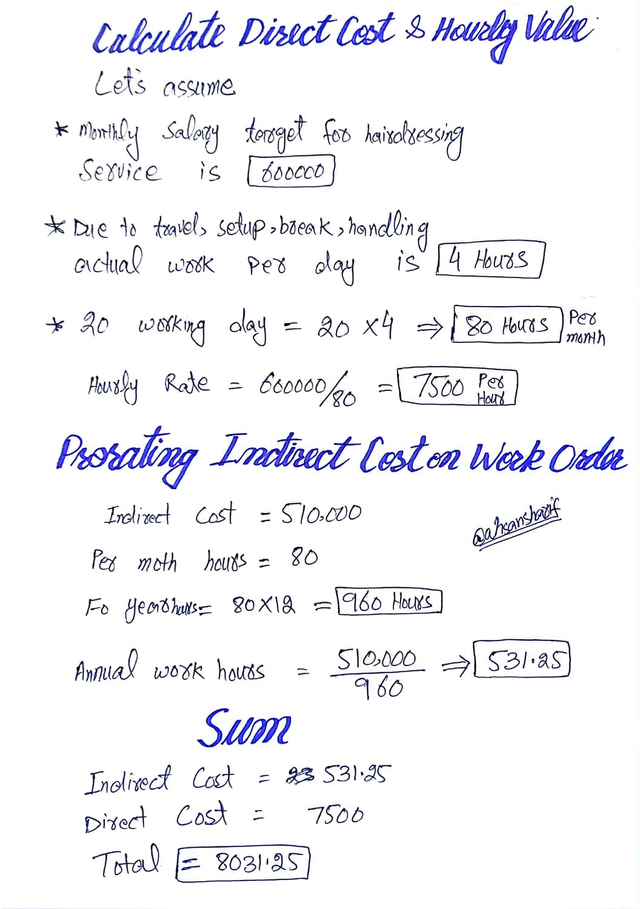 Calculate Direct Cost & Hourly Value
Let's assume
* Monthly Salary target for hairdressing
Service is 600000
* Due to travel, setup, break, handling
actual work per day is 4 Hours
* 20 working day = 20 x4 ⇒ 80 Hours Per
month
Hourly Rate = 600000/80 = 7500 Per
Hour
Prorating Indirect Cost on Work Order
Indirect Cost = 510,000
@ahsansharif
Per moth hours = 80
Fo year hours = 80X12 = 960 Hours
Annual work hours = 510,000 / 960 ⇒ 531.25
Sum
Indirect Cost = 531.25
Direct Cost = 7500
Total = 8031.25